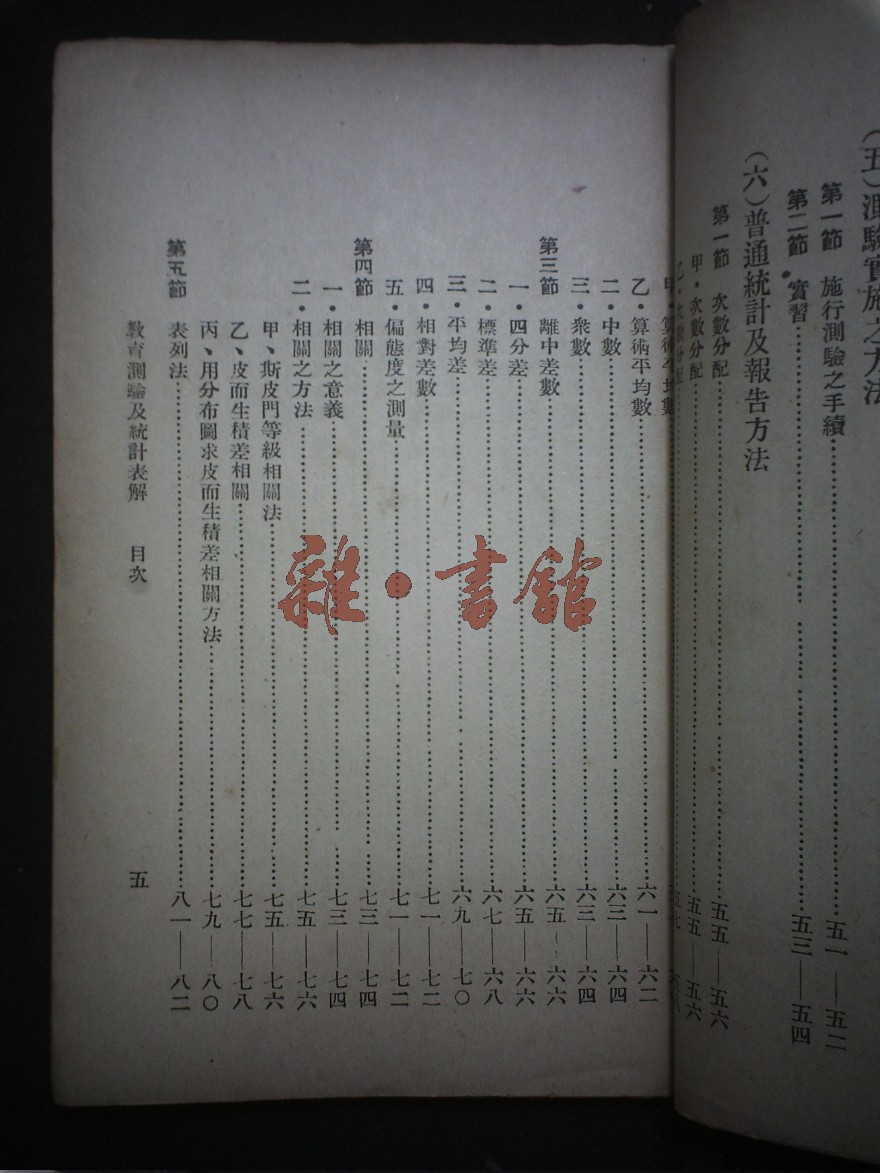 （五）測驗實施之方法
第一節　施行測驗之手續……五一——五二
第二節　實習……五三——五四
（六）普通統計及報告方法
第一節　次數分配……五五——五六
甲・次數分配……五五——五六
乙・次數分配……五七——五八
甲・算術平均數
乙・算術平均數……六一——六二
二・中數……六三——六四
三・衆數……六三——六四
第三節　離中差數……六五——六六
一・四分差……六五——六六
二・標準差……六七——六八
三・平均差……六九——七〇
四・相對差數……七一——七二
五・偏態度之測量……七一——七二
第四節　相關……七三——七四
一・相關之意義……七三——七四
二・相關之方法……七五——七六
甲、斯皮門等級相關法……七五——七六
乙、皮而生積差相關……七七——七八
丙、用分布圖求皮而生積差相關方法……七九——八〇
第五節　表列法……八一——八二
教育測驗及統計表解　目次　五
雜・書館